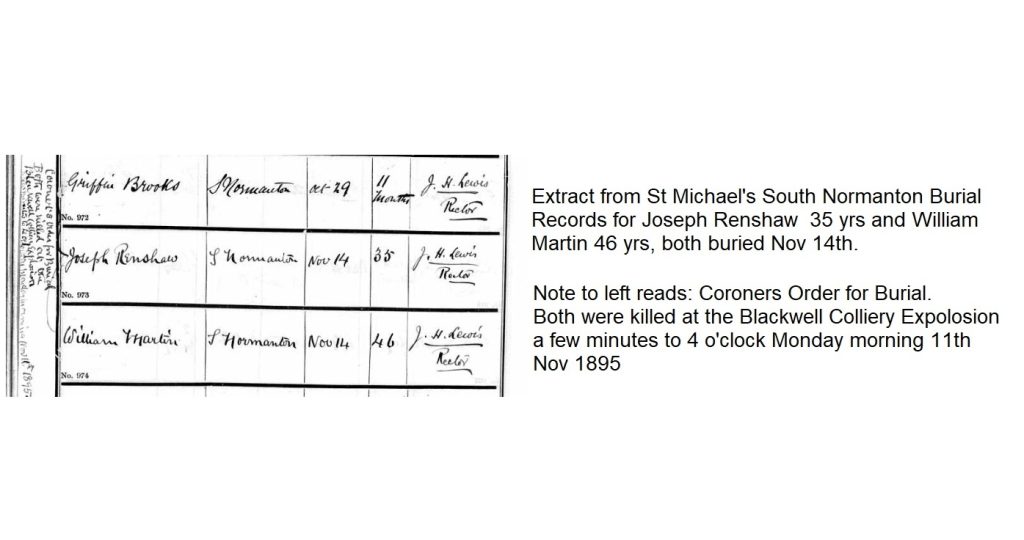 Coroner's Order for Burial
Both were killed at the
Blackwell Colliery Explosion
Griffin Brooks S Normanton Oct-29 11 months J. H. Lewis Rector
No. 972
Joseph Renshaw S Normanton Nov 14 35 J. H. Lewis Rector
No. 973
William Martin S Normanton Nov 14 46 J. H. Lewis Rector
No. 974
Extract from St Michael's South Normanton Burial
Records for Joseph Renshaw 35 yrs and William
Martin 46 yrs, both buried Nov 14th.
Note to left reads: Coroners Order for Burial.
Both were killed at the Blackwell Colliery Expolosion
a few minutes to 4 o'clock Monday morning 11th
Nov 1895